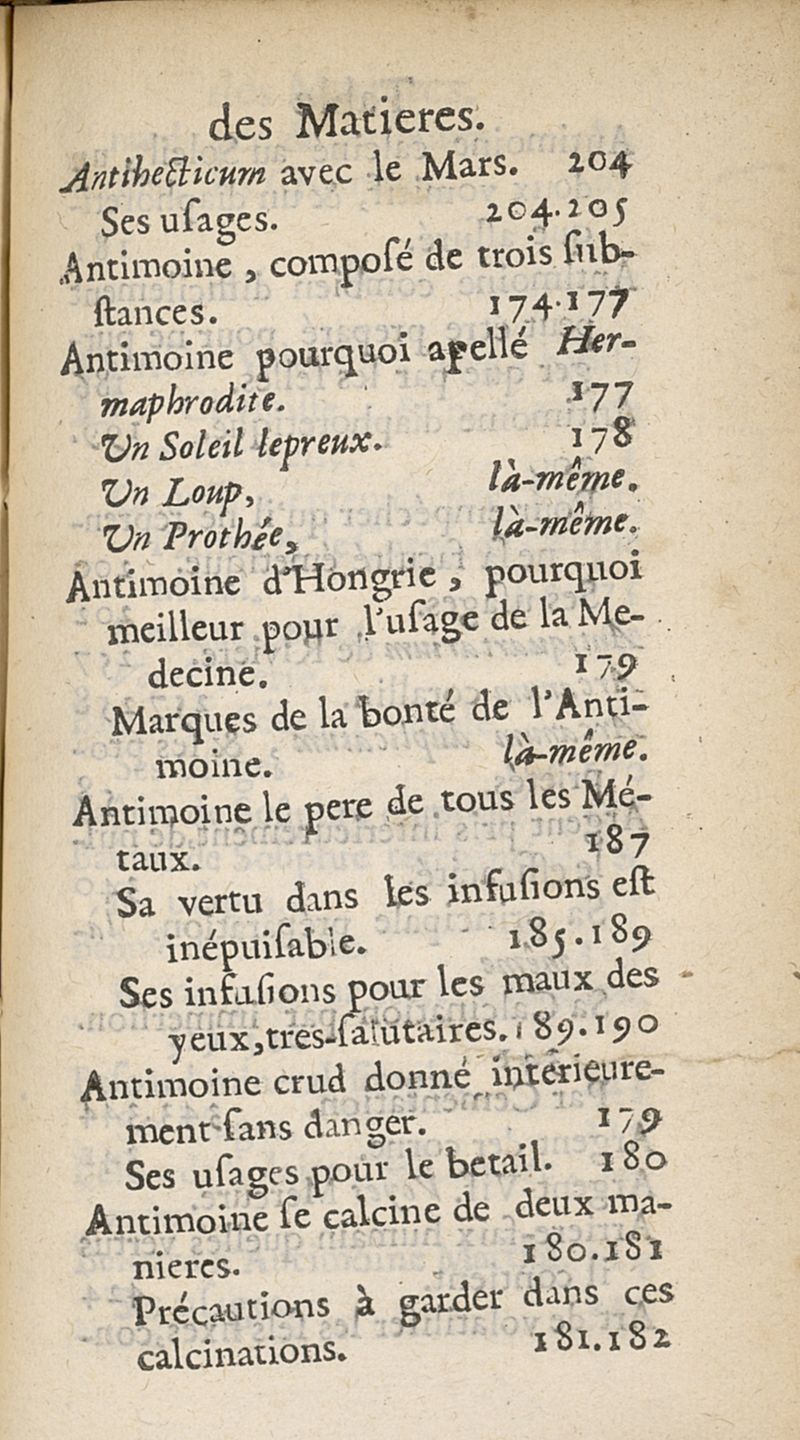 des Matieres.
Antihecticum avec le Mars. 204
Ses uſages. 204.205
Antimoine, compoſé de trois ſub-
ſtances. 174.177
Antimoine pourquoi apellé Her-
maphrodite. 177
Un Soleil lepreux. 178
Un Loup, là-même.
Un Prothée, là-même.
Antimoine d'Hongrie, pourquoi
meilleur pour l'uſage de la Me-
decine. 179
Marques de la bonté de l'Anti-
moine. là-même.
Antimoine le pere de tous les Mé-
taux. 187
Sa vertu dans les infuſions eſt
inépuiſable. 185.189
Ses infuſions pour les maux des
yeux, tres-ſalutaires. 189.190
Antimoine crud donné interieure-
ment ſans danger. 179
Ses uſages pour le betail. 180
Antimoine ſe calcine de deux ma-
nieres. 180.181
Précautions à garder dans ces
calcinations. 181.182